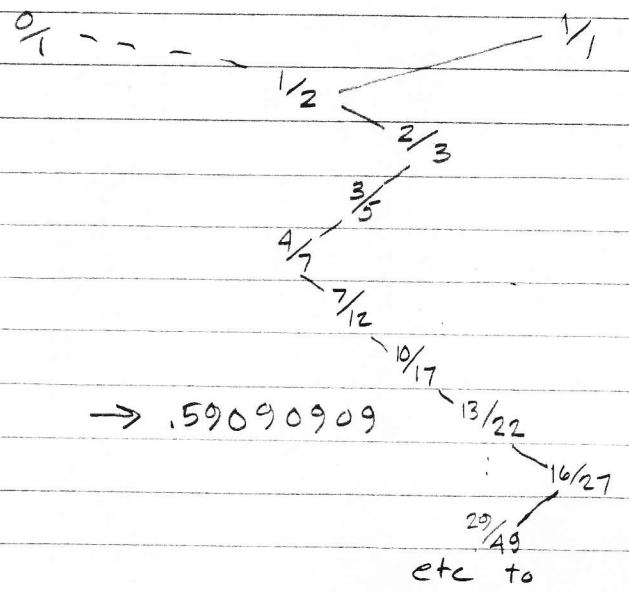 0/1 1/1
1/2
2/3
3/5
4/7
7/12
10/17
→ .590909090 13/22
16/27
29/49
etc to